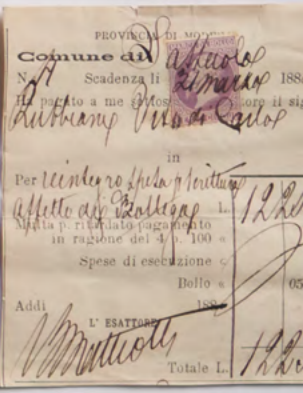 PROVINCIA DI MODE
Comune di Sassuolo
N. A Scadenza li 31 marzo 188
Ha pagato a me sottos ore il sig
Rubbiani Vito di Carlo
in
Per reintegro spesa p scritture
affetto di Bottega L. 122
Multa p. ritardato pagamento
in ragione del 4 p. 100 «
Spese di esecuzione «
Bollo « 05
Addi 188
L' ESATTORE
Matteotti
Totale L. 122